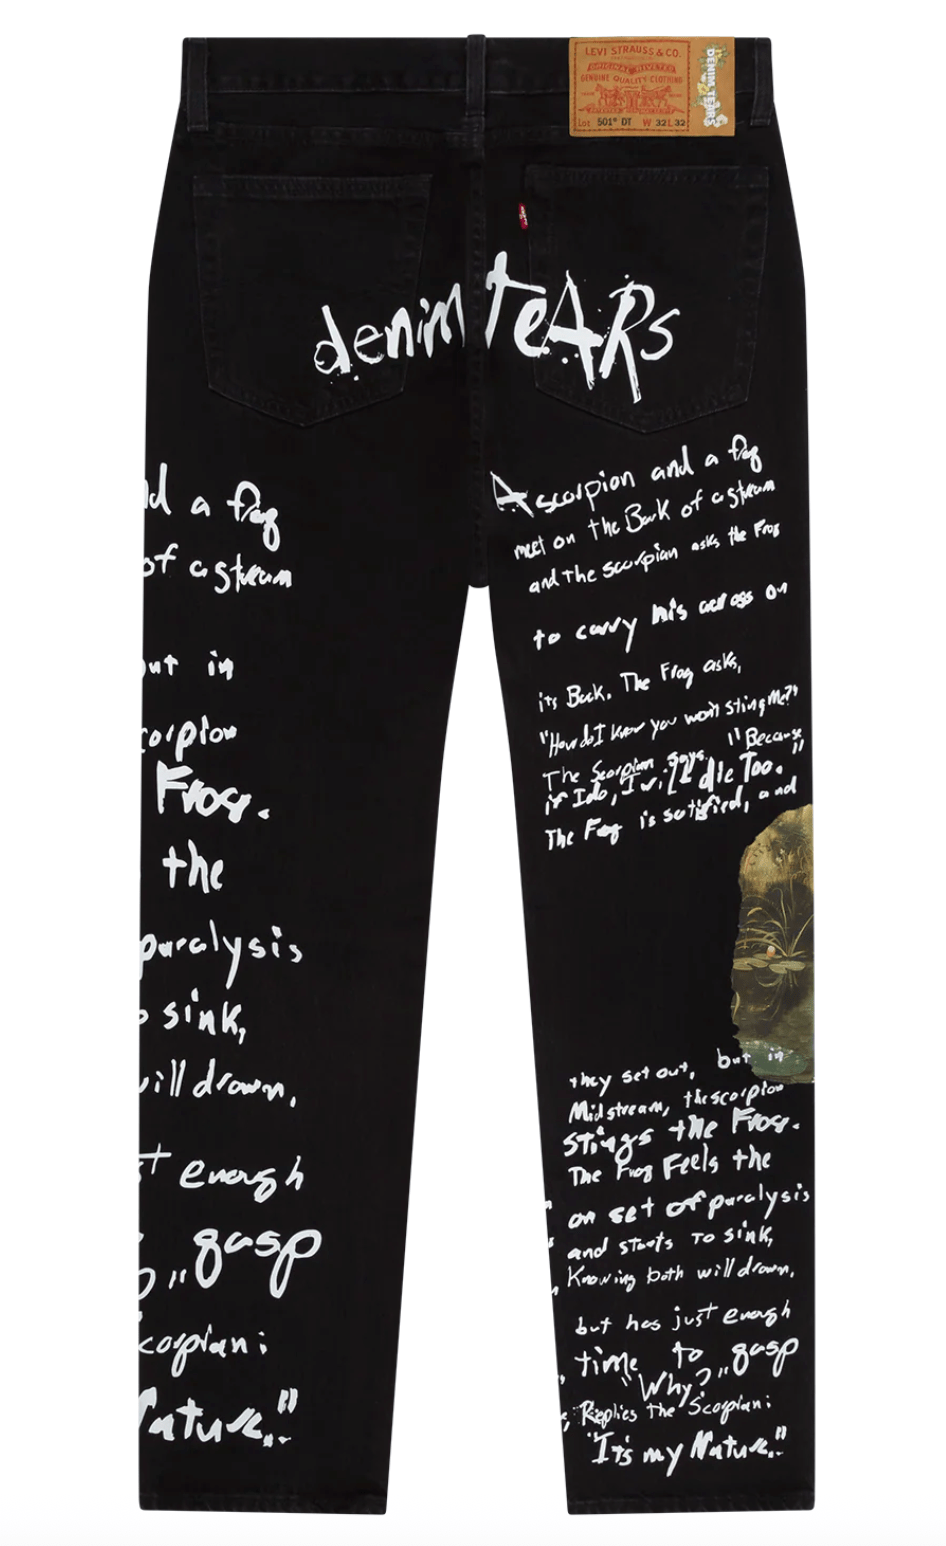 LEVI STRAUSS & CO.
ORIGINAL RIVETED
GENUINE QUALITY CLOTHING
Lot 501® DT W 32 L 32
DENIM TEARS
denim teARs
d a frog
of a stream
out in
corpion
Frog.
the
paralysis
o sink,
will drown,
st enough
gasp
corpian:
Nature."
A scorpion and a frog
meet on the Bank of a stream
and the scorpian asks the Frog
to carry his across on
its Back. The Frog asks,
"How do I know you won't sting Me?"
The Scorpian says, "Because
if I do, I will die Too."
The Frog is satisfied, and
they set out, but in
Midstream, the scorpion
stings the Frog.
The Frog Feels the
on set of paralysis
and starts To sink,
Knowing both will drown,
but has just enough
time to gasp
"Why?"
Replies the Scorpian:
"It's my Nature."